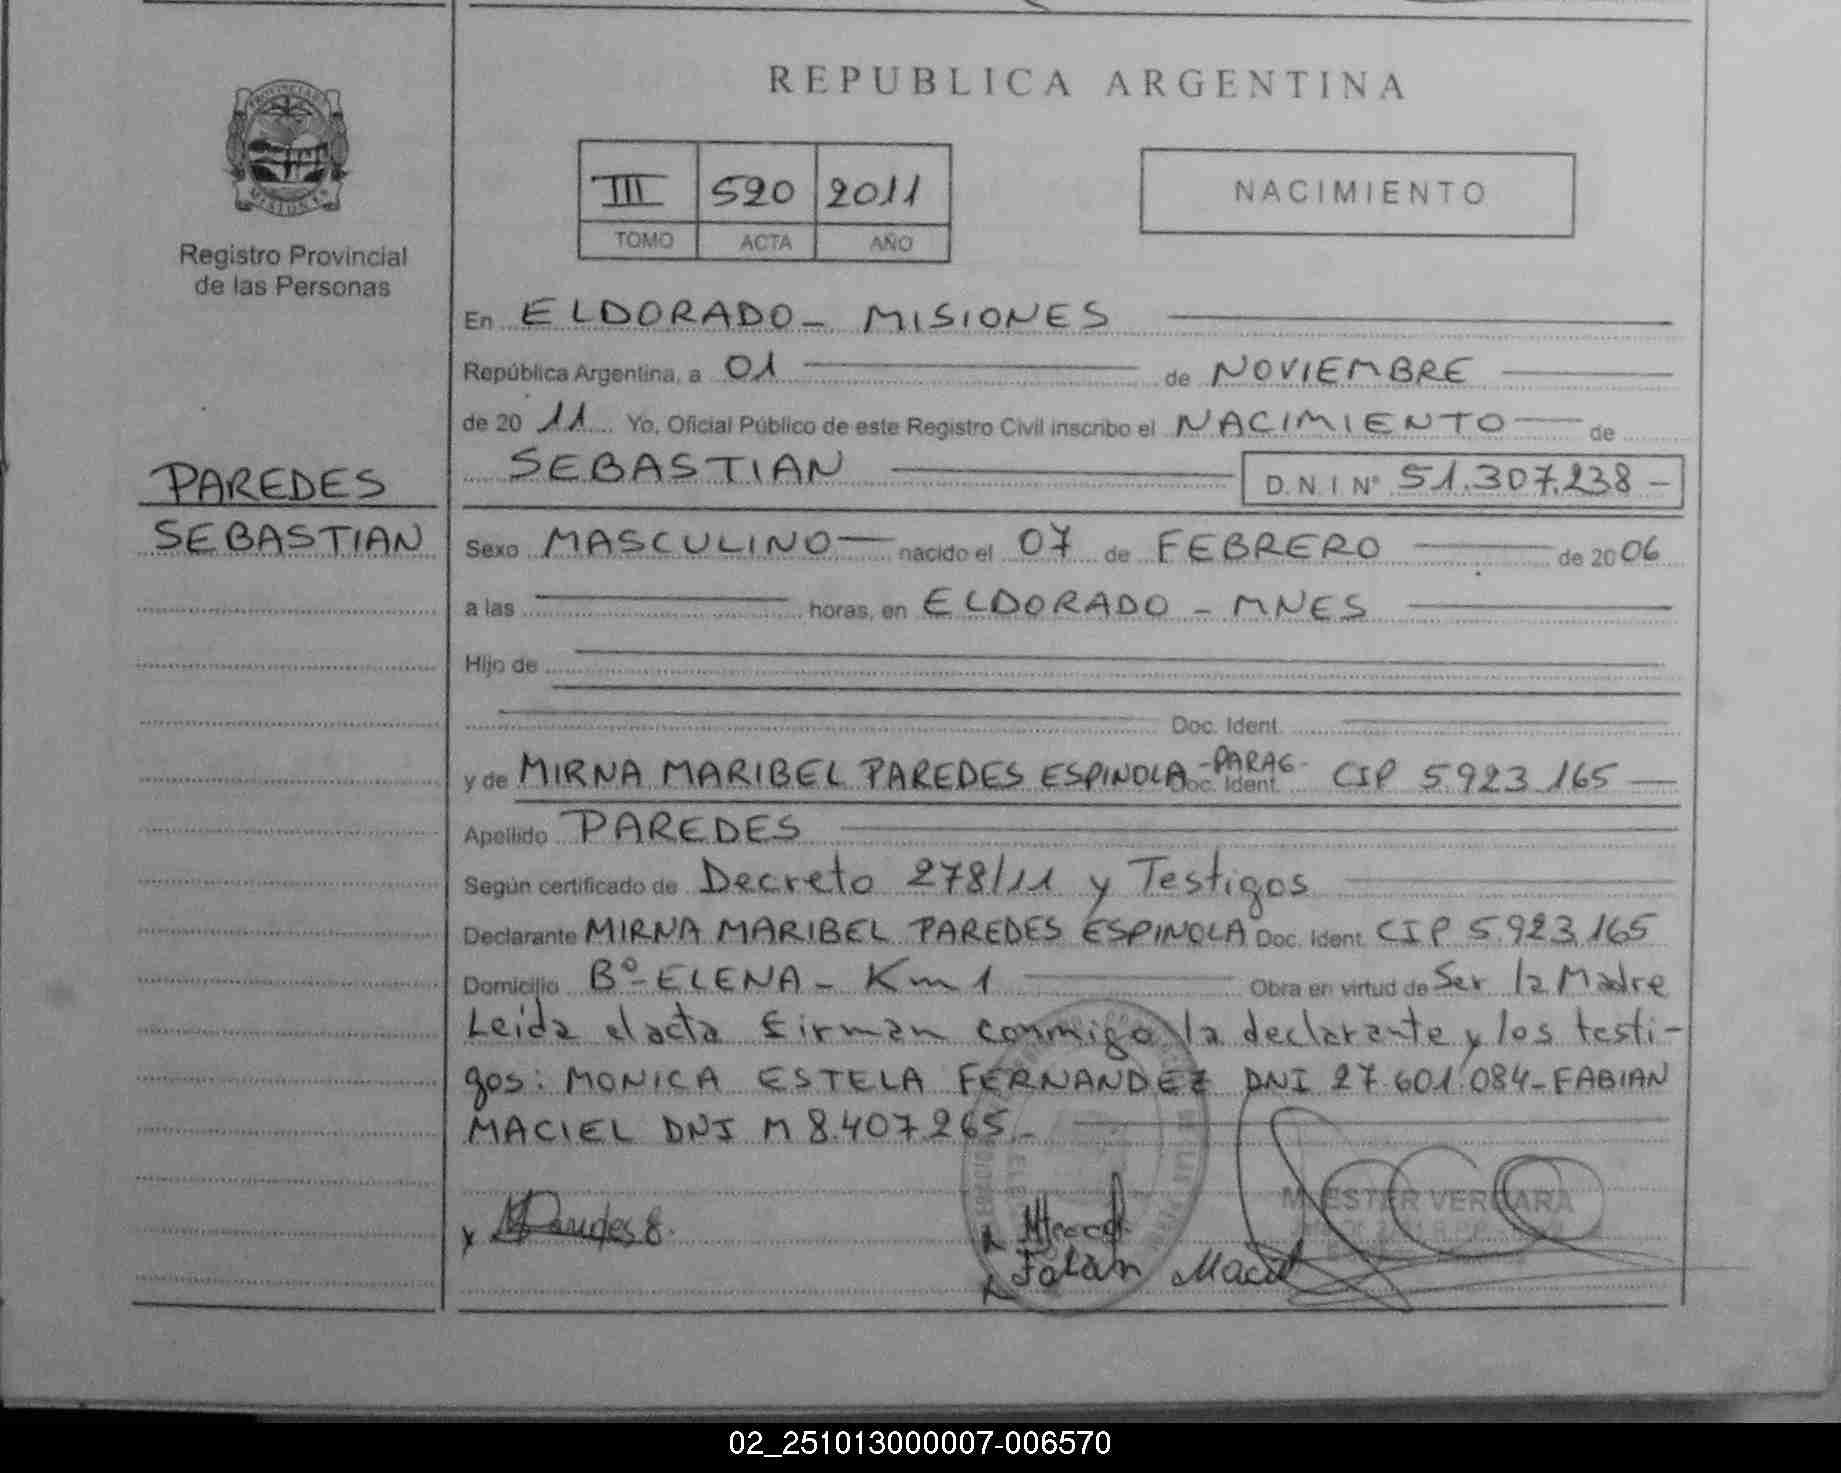 REPUBLICA ARGENTINA
PROVINCIA
MISIONES
Registro Provincial
de las Personas
III 520 2011
TOMO ACTA AÑO
NACIMIENTO
En ELDORADO - MISIONES
República Argentina, a 01 de NOVIEMBRE
de 20 11 Yo, Oficial Público de este Registro Civil inscribo el NACIMIENTO de
SEBASTIAN D.N.I Nº 51.307.238 -
PAREDES
SEBASTIAN
Sexo MASCULINO nacido el 07 de FEBRERO de 20 06
a las horas, en ELDORADO - MNES
Hijo de
Doc. Ident.
y de MIRNA MARIBEL PAREDES ESPINOLA -PARAG- Doc. Ident. CIP 5.923.165
Apellido PAREDES
Según certificado de Decreto 278/11 y Testigos
Declarante MIRNA MARIBEL PAREDES ESPINOLA Doc. Ident. CIP 5.923.165
Domicilio Bº ELENA - Km 1 Obra en virtud de Ser la Madre
Leida el acta firman conmigo la declarante y los testi-
gos: MONICA ESTELA FERNANDEZ DNI 27.601.084 - FABIAN
MACIEL DNI M 8.407.265 -
x Paredes E.
ESTER VERGARA
Fabian Maciel
02_251013000007-006570